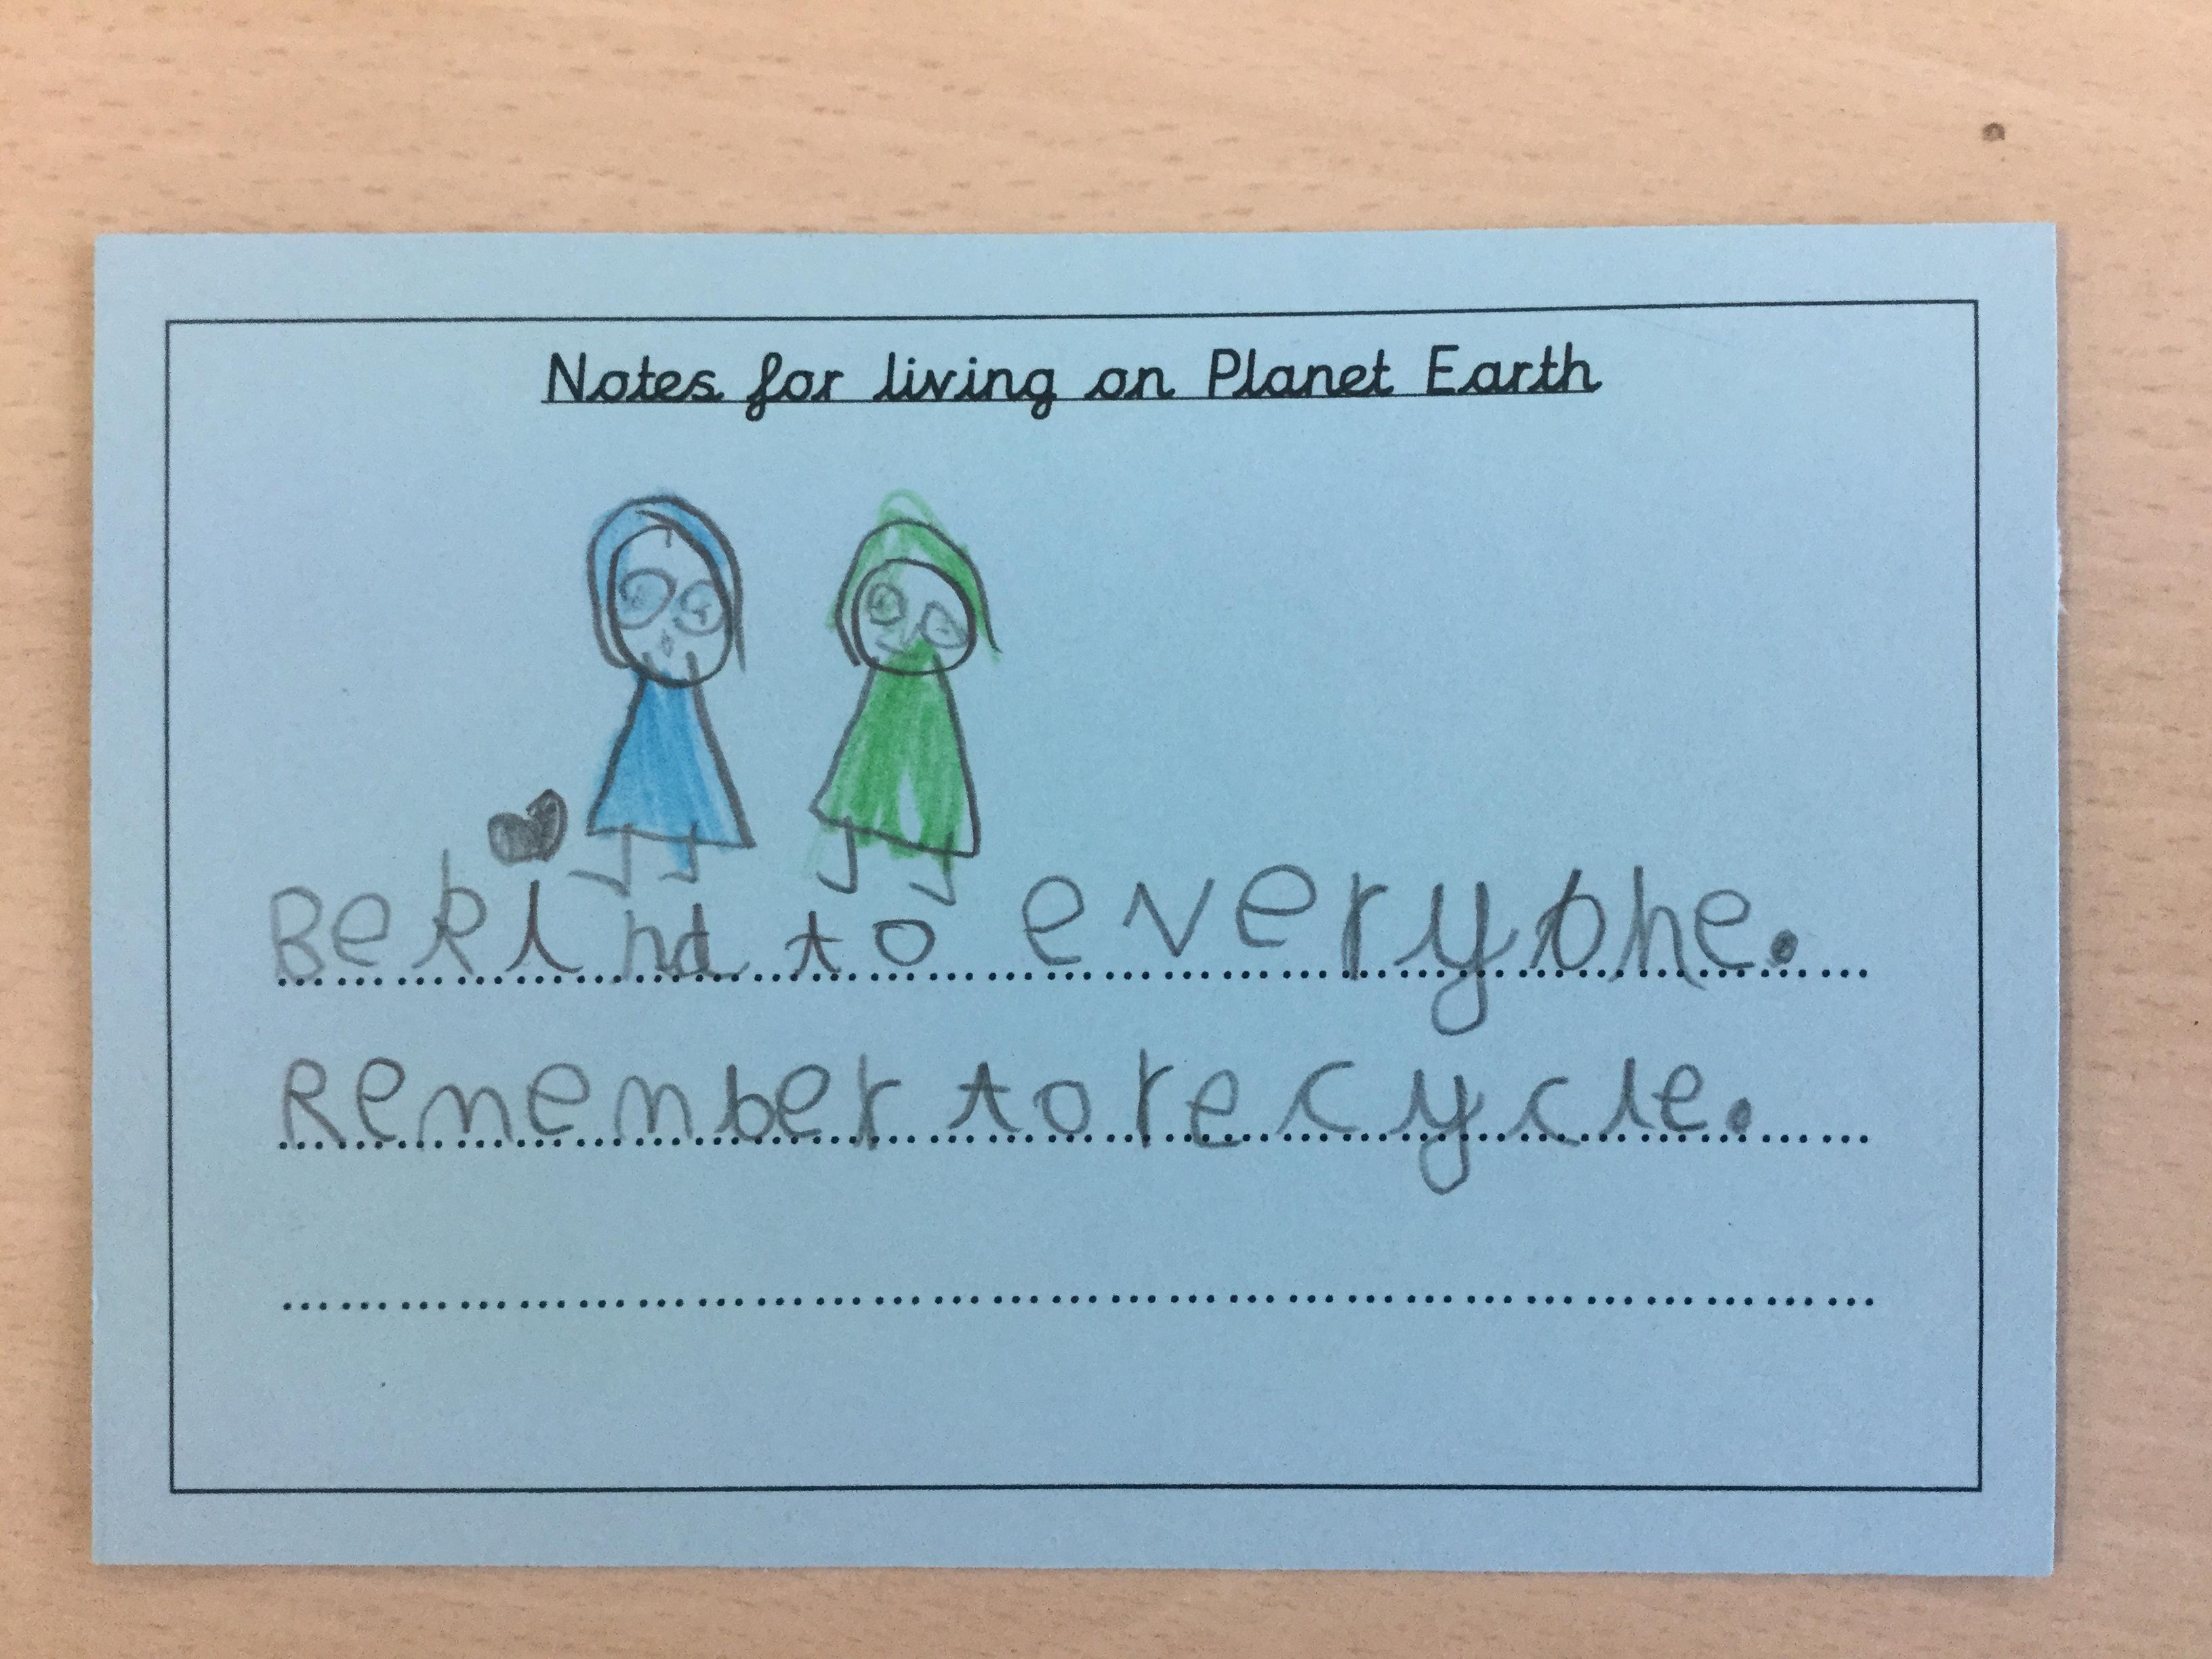 Notes for living on Planet Earth
Be kind to everyone.
Remember to recycle.